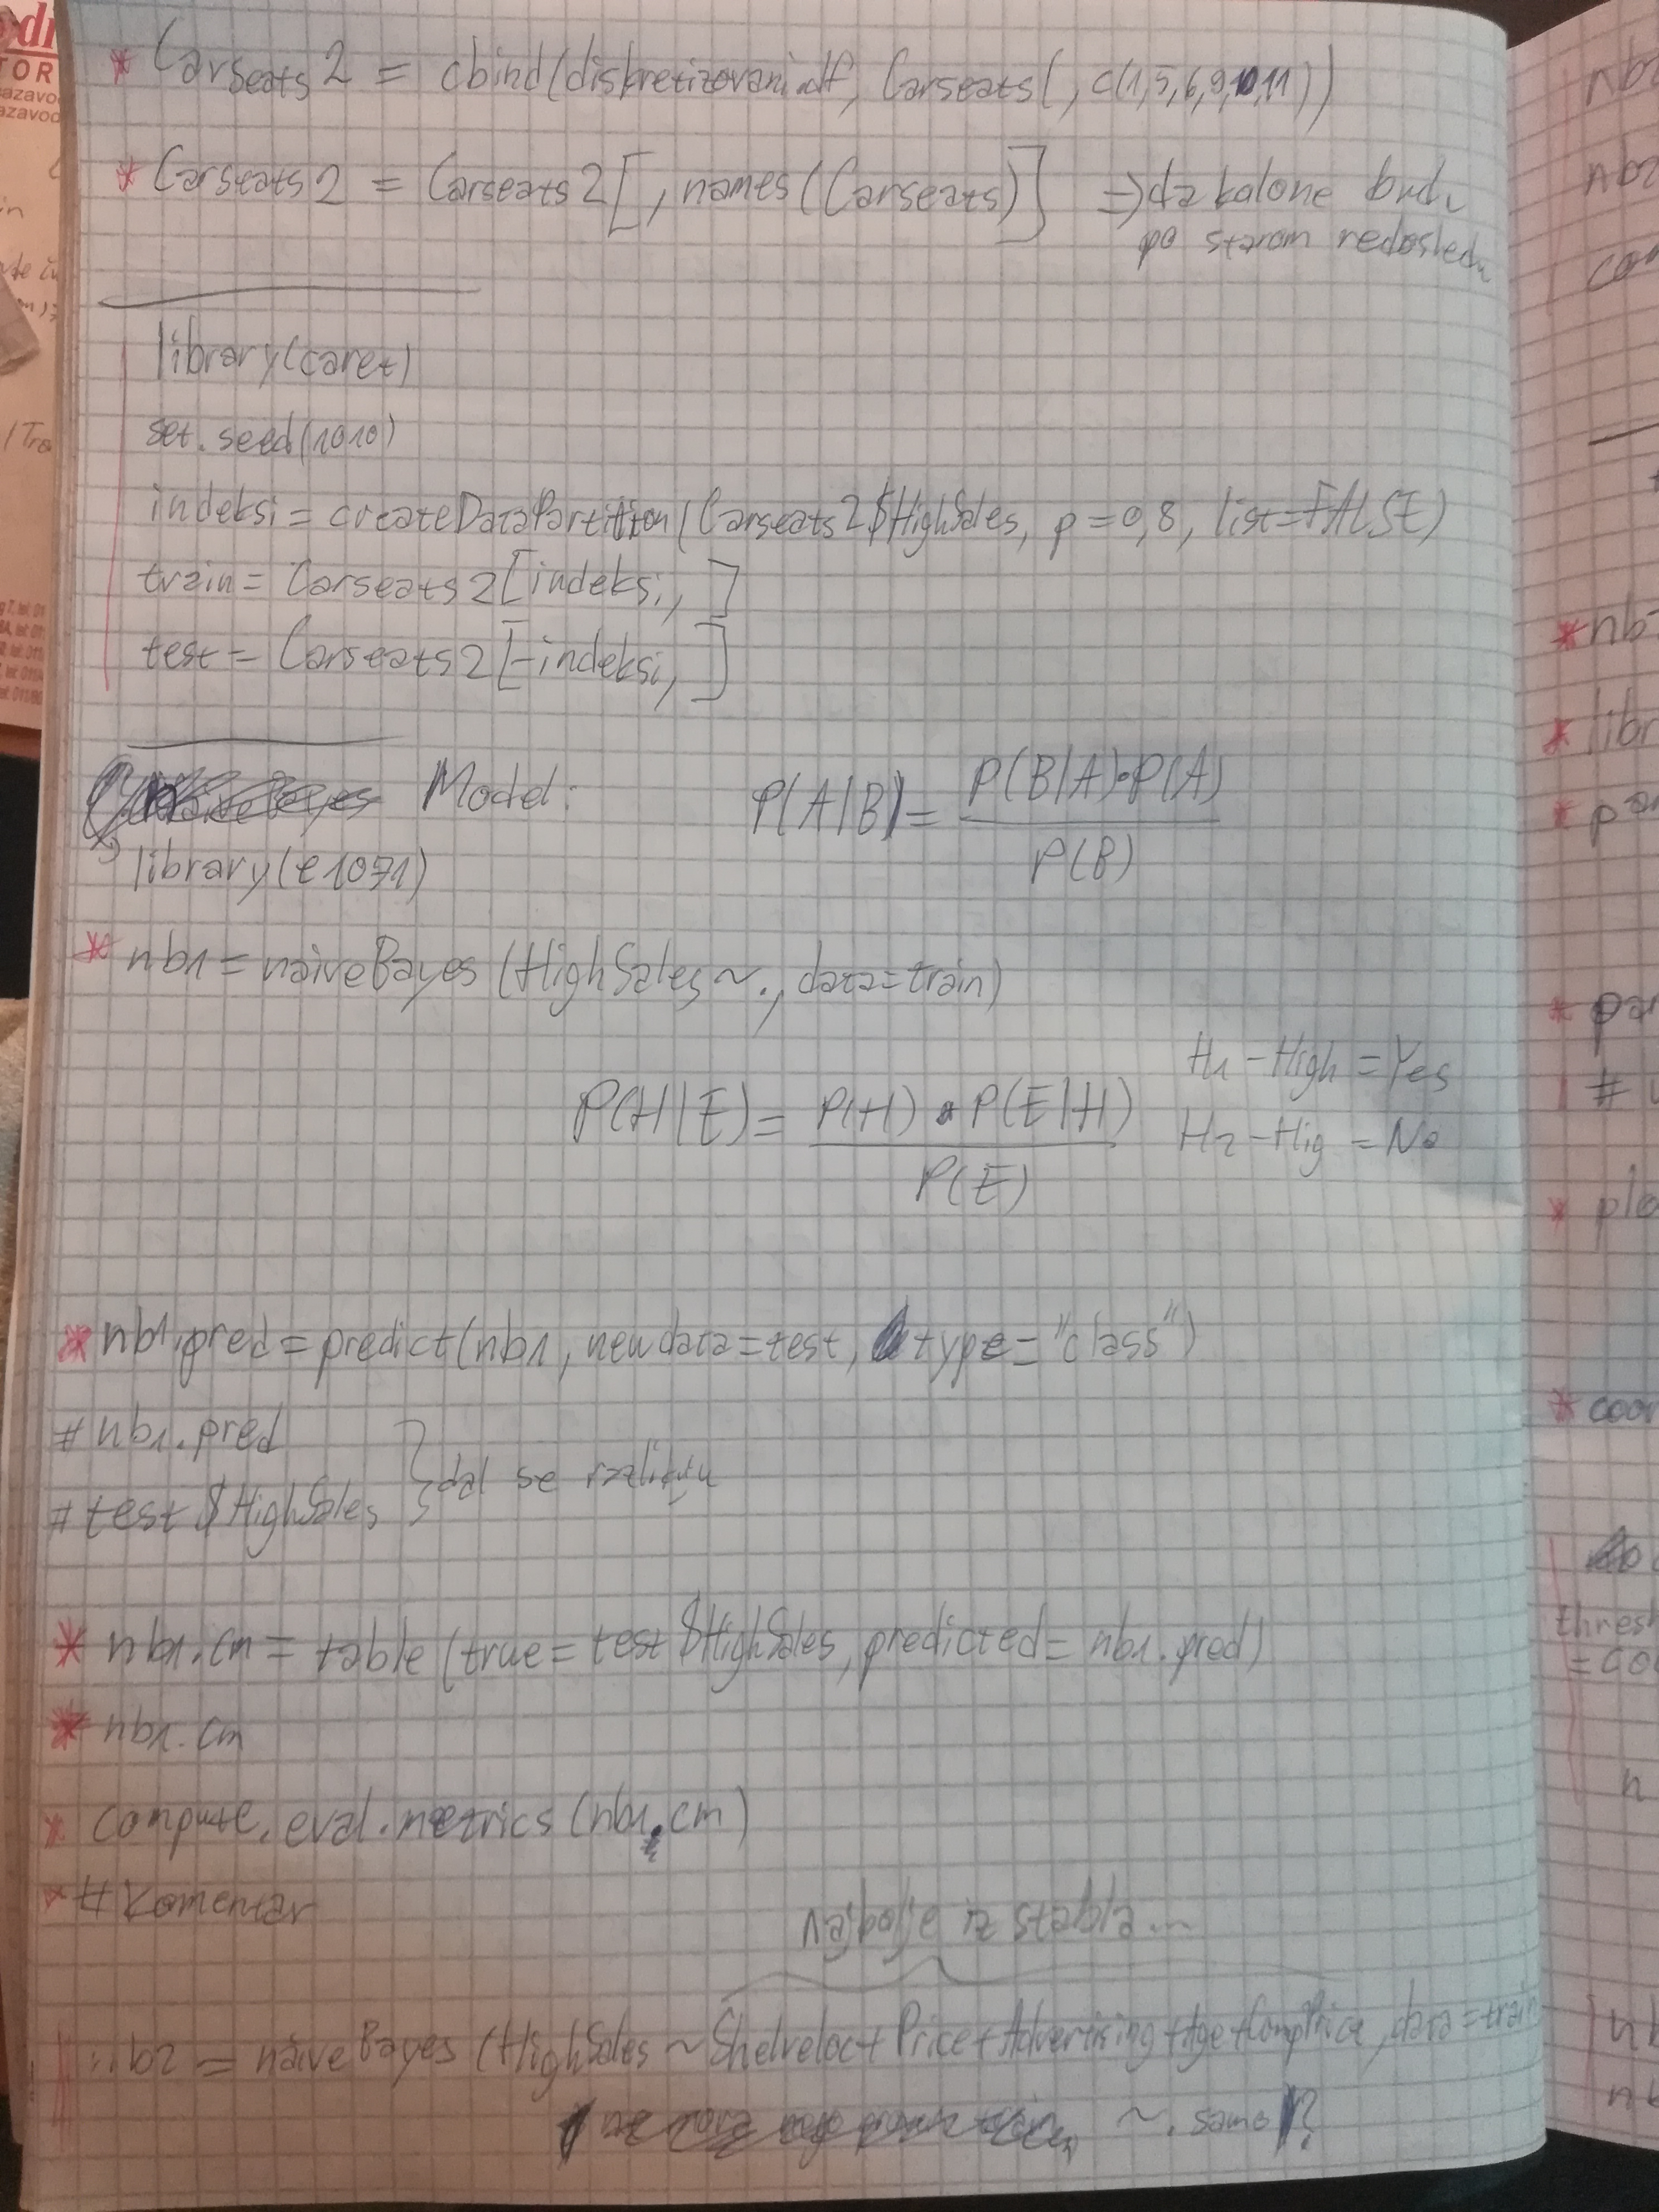 * Carseats2 = cbind(diskretizovani.df, Carseats(, c(1,5,6,9,10,11))
* Carseats2 = Carseats2[, names(Carseats)] => da kolone budu
po starom redosledu
library(caret)
set.seed(1010)
indeksi = createDataPartition(Carseats2$HighSales, p=0,8, list=FALSE)
train = Carseats2[indeksi, ]
test = Carseats2[-indeksi, ]
Model: P(A|B) = P(B|A)·P(A)
P(B)
library(e1071)
* nb1 = naiveBayes (HighSales ~., data=train)
H1 - High = Yes
P(H|E) = P(H) · P(E|H)
P(E)
H2 - Hig = No
* nb1.pred = predict(nb1, newdata=test, type="class")
# nb1.pred
# test$HighSales } dal se razlikuju
* nb1.cm = table (true = test$HighSales, predicted = nb1.pred)
* nb1.cm
* compute.eval.metrics (nb1.cm)
* # Komentar
Najbolje iz stabla...
nb2 = naiveBayes (HighSales ~ Shelveloc + Price + Advertising + Age + CompPrice, data = train
~. samo ?
nb2
com
* nb
* libr
* par
* par
#
* plo
* coor
thresh
= coo
n
nb
nb